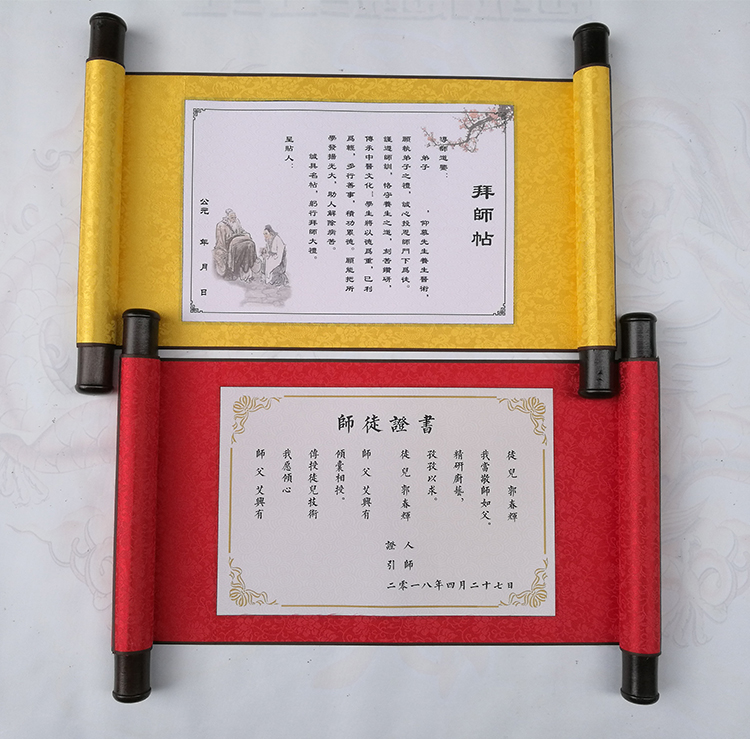 拜師帖
導師道鑒：
弟子　　，仰慕先生養生醫術，
願執弟子之禮，誠心投恩師門下爲徒。
謹遵師訓，恪守養生之道，刻苦鑽研，
傳承中醫文化–學生將以德爲重，己利
爲輕，多行善事，積功累德。願能把所
學發揚光大，助人解除病苦。
誠具名帖，躬行拜師大禮。
呈貼人：
公元　年　月　日
師徒證書
徒兒郭春輝
我當敬師如父。
精研廚藝，
孜孜以求。
徒兒郭春輝
師父艾興有
傾囊相授。
傳授徒兒技術
我愿傾心
師父艾興有
證 人
引 師
二零一八年四月二十七日